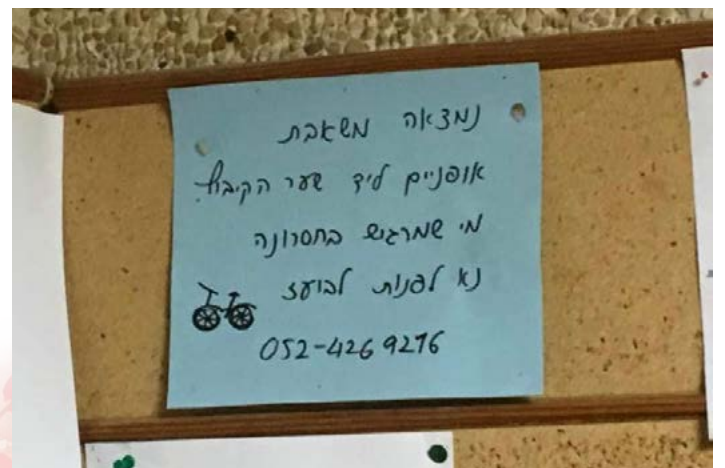 נמצאה משאבת
אופניים ליד שער הקיבוץ.
מי שמרגיש בחסרונה
נא לפנות לבועז
052-4269276